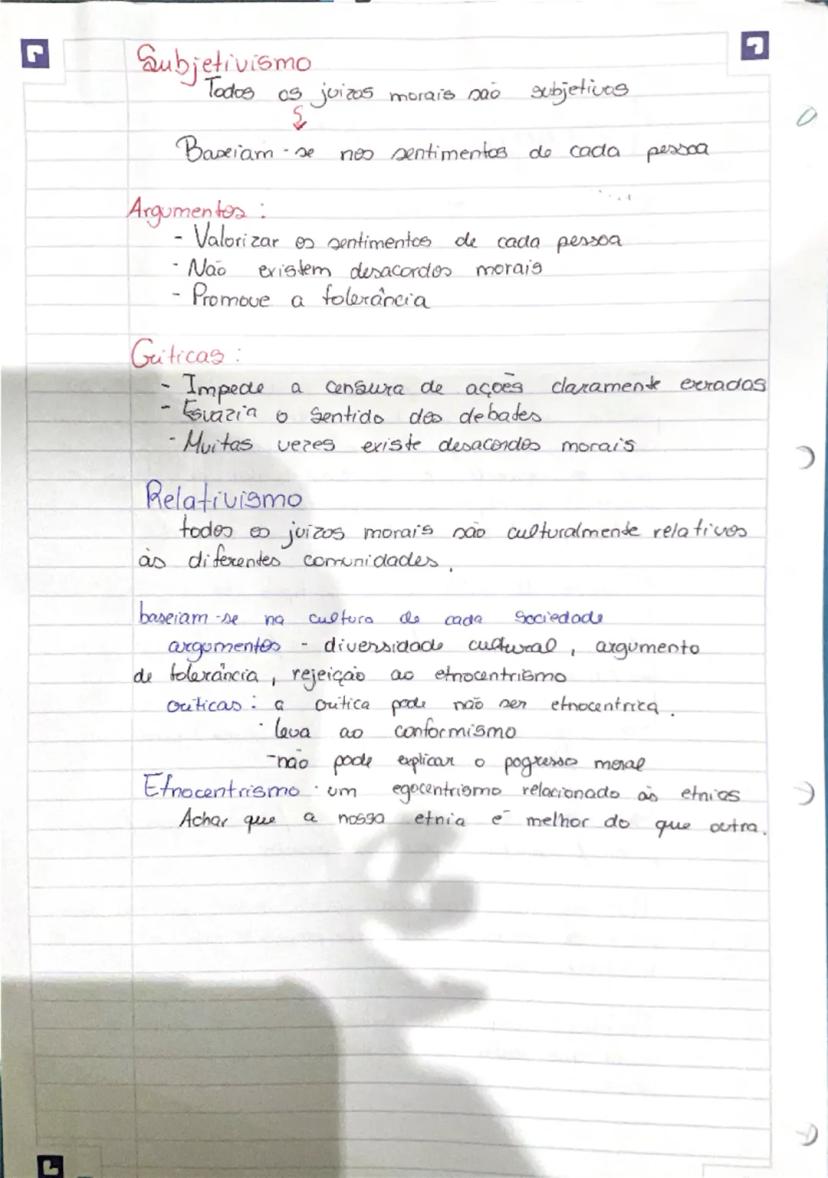 Subjetivismo
Todos os juizos morais são subjetivos
Baseiam-se nos sentimentos de cada pessoa
Argumentos:
- Valorizar os sentimentos de cada pessoa
- Não existem desacordos morais
- Promove a tolerância
Críticas:
- Impede a censura de ações claramente erradas
- Esvazia o sentido dos debates
- Muitas vezes existe desacordos morais
Relativismo
todos os juizos morais são culturalmente relativos
às diferentes comunidades.
baseiam-se na cultura de cada sociedade
argumentos - diversidade cultural, argumento
de tolerância, rejeição ao etnocentrismo
críticas: a crítica pode não ser etnocentrica.
· leva ao conformismo
-não pode explicar o pogresso moral
Etnocentrismo · um egocentrismo relacionado às etnias
Achar que a nossa etnia é melhor do que outra.